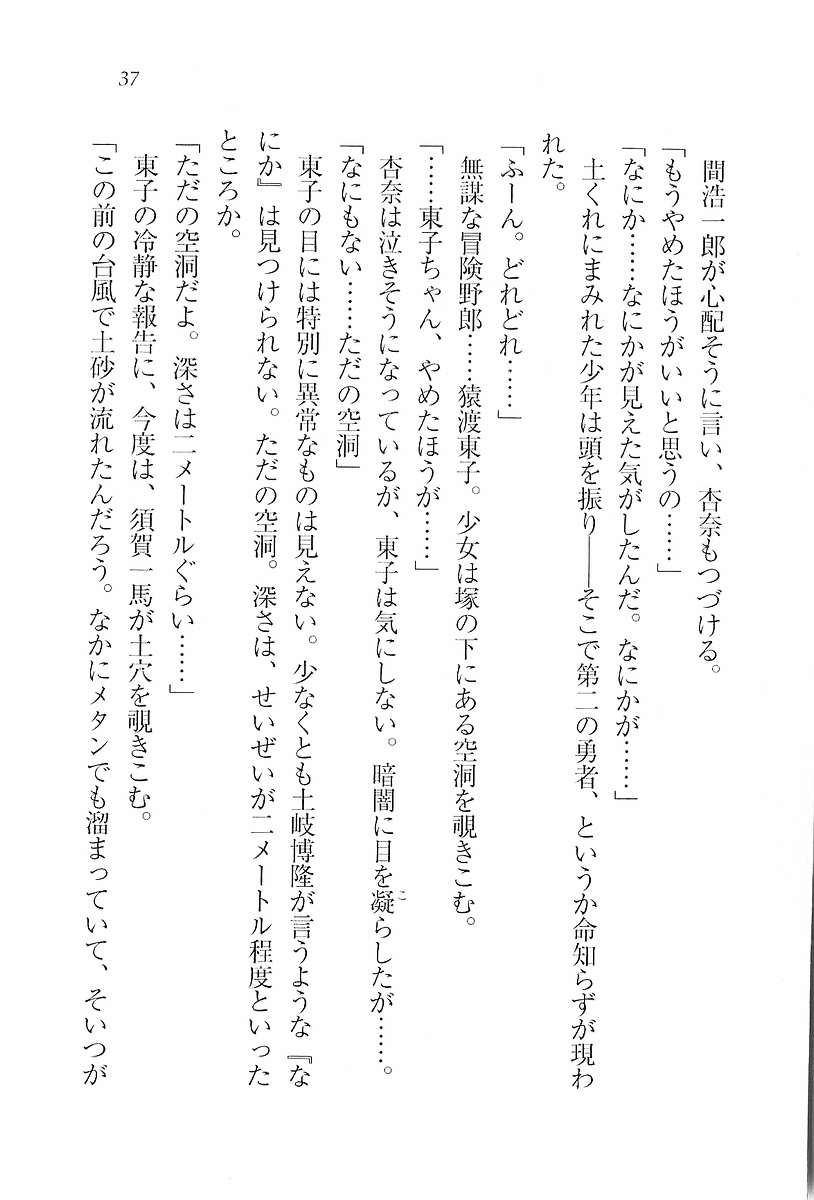 37
間浩一郎が心配そうに言い、杏奈もつづける。
「もうやめたほうがいいと思うの……」
「なにか……なにかが見えた気がしたんだ。なにかが……」
土くれにまみれた少年は頭を振り――そこで第二の勇者、というか命知らずが現わ
れた。
「ふーん。どれどれ……」
無謀な冒険野郎……猿渡東子。少女は塚の下にある空洞を覗きこむ。
「……東子ちゃん、やめたほうが……」
杏奈は泣きそうになっているが、東子は気にしない。暗闇に目を凝らしたが……。
「なにもない……ただの空洞」
東子の目には特別に異常なものは見えない。少なくとも土岐博隆が言うような『な
にか』は見つけられない。ただの空洞。深さは、せいぜいが二メートル程度といった
ところか。
「ただの空洞だよ。深さは二メートルぐらい……」
東子の冷静な報告に、今度は、須賀一馬が土穴を覗きこむ。
「この前の台風で土砂が流れたんだろう。なかにメタンでも溜まっていて、そいつが